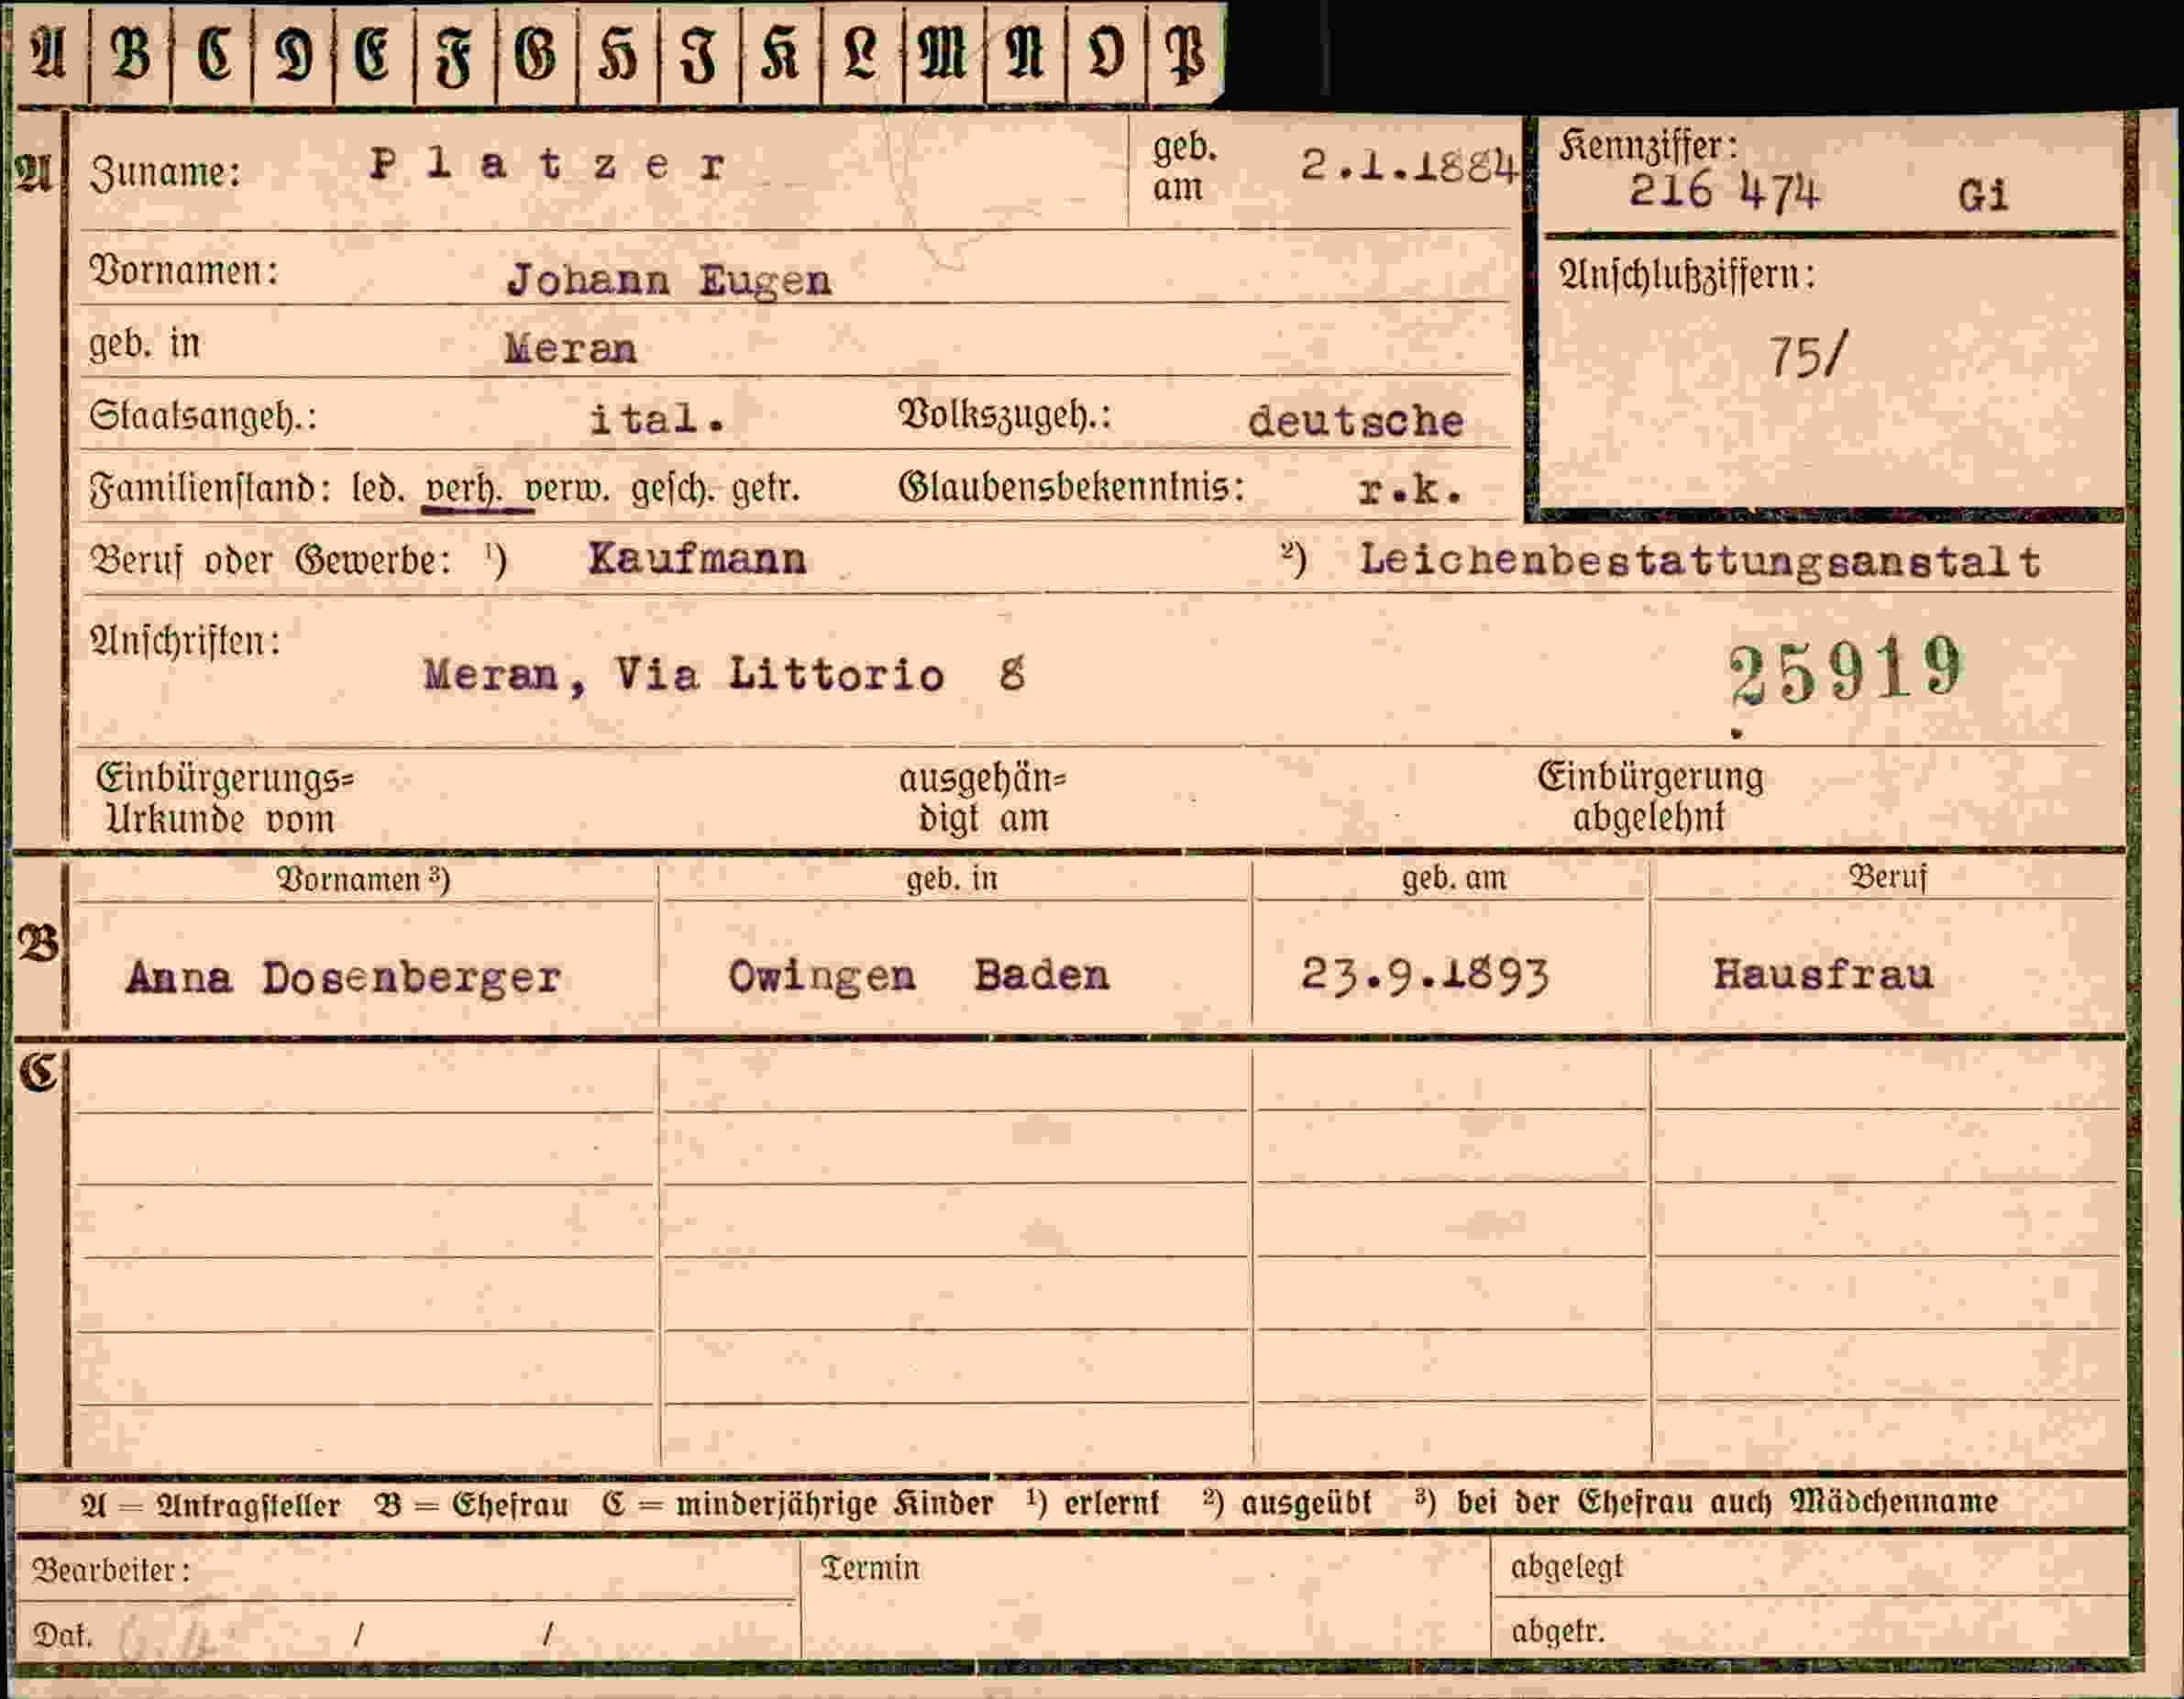 A B C D E F G H I K L M N O P
A Zuname: Platzer geb. am 2.1.1884
Kennziffer: 216 474 Gi
Vornamen: Johann Eugen
Anschlußziffern: 75/
geb. in Meran
Staatsangeh.: ital. Volkszugeh.: deutsche
Familienstand: led. verh. verw. gesch. getr. Glaubensbekenntnis: r.k.
Beruf oder Gewerbe: ¹) Kaufmann ²) Leichenbestattungsanstalt
Anschriften: Meran, Via Littorio 8 25919
Einbürgerungs= ausgehän= Einbürgerung
Urkunde vom digt am abgelehnt
Vornamen ³) geb. in geb. am Beruf
B Anna Dosenberger Owingen Baden 23.9.1893 Hausfrau
C
A = Antragsteller B = Ehefrau C = minderjährige Kinder ¹) erlernt ²) ausgeübt ³) bei der Ehefrau auch Mädchenname
Bearbeiter: Termin abgelegt
Dat. / / abgetr.